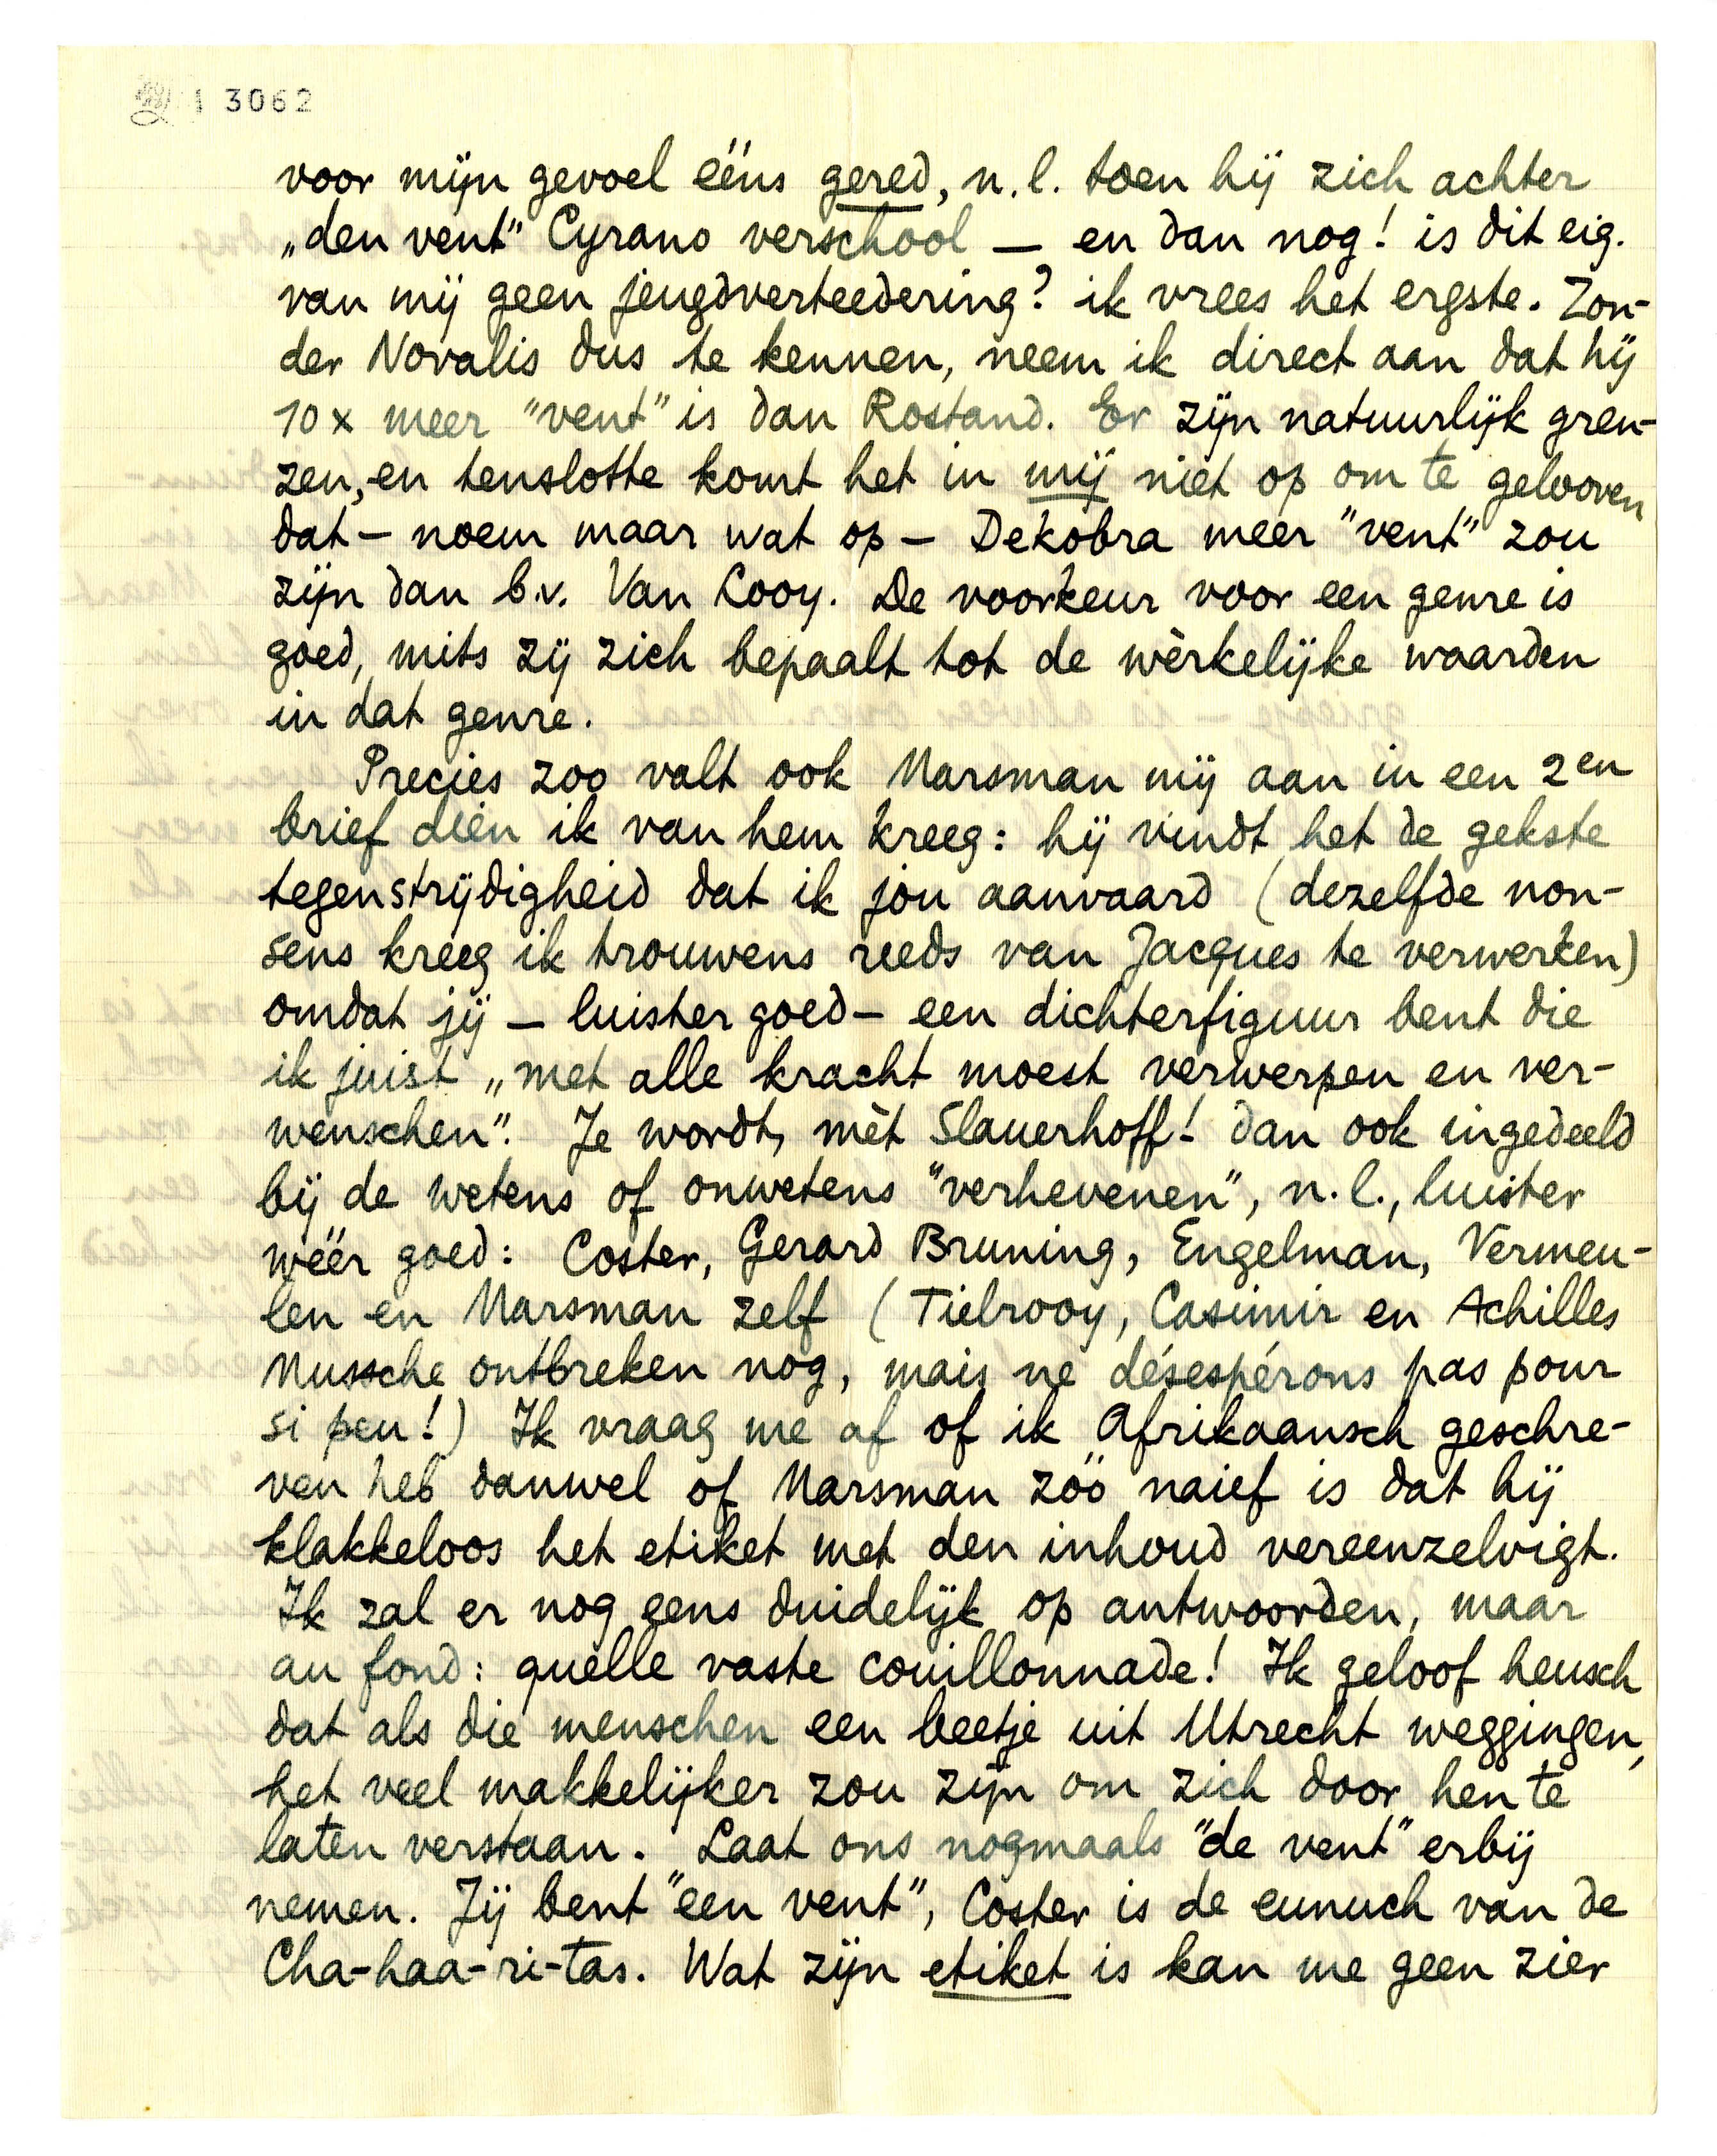 3062
voor mijn gevoel ééns gered, n.l. toen hij zich achter
„den vent” Cyrano verschool — en dan nog! is dit eig.
van mij geen jeugdverteedering? ik vrees het ergste. Zon-
der Novalis dus te kennen, neem ik direct aan dat hij
10 x meer "vent" is dan Rostand. Er zijn natuurlijk gren-
zen, en tenslotte komt het in mij niet op om te gelooven
dat — noem maar wat op — Dekobra meer "vent" zou
zijn dan b.v. Van Looy. De voorkeur voor een genre is
goed, mits zij zich bepaalt tot de wèrkelijke waarden
in dat genre.
Precies zoo valt ook Marsman mij aan in een 2en
brief dien ik van hem kreeg: hij vindt het de gekste
tegenstrijdigheid dat ik jou aanvaard (dezelfde non-
sens kreeg ik trouwens reeds van Jacques te verwerken)
omdat jij — luister goed — een dichterfiguur bent die
ik juist „met alle kracht moest verwerpen en ver-
wenschen”. Je wordt, mèt Slauerhoff! dan ook ingedeeld
bij de wetens of onwetens "verhevenen", n.l., luister
wéér goed: Coster, Gerard Bruning, Engelman, Vermeu-
len en Marsman zelf (Tielrooy, Casimir en Achilles
Mussche ontbreken nog, mais ne désespérons pas pour
si peu!) Ik vraag me af of ik Afrikaansch geschre-
ven heb danwel of Marsman zóó naief is dat hij
klakkeloos het etiket met den inhoud vereenzelvigt.
Ik zal er nog eens duidelijk op antwoorden, maar
au fond: quelle vaste couillonnade! Ik geloof heusch
dat als die menschen een beetje uit Utrecht weggingen,
het veel makkelijker zou zijn om zich door hen te
laten verstaan. Laat ons nogmaals "de vent" erbij
nemen. Jij bent "een vent", Coster is de eunuch van de
Cha-haa-ri-tas. Wat zijn etiket is kan me geen zier